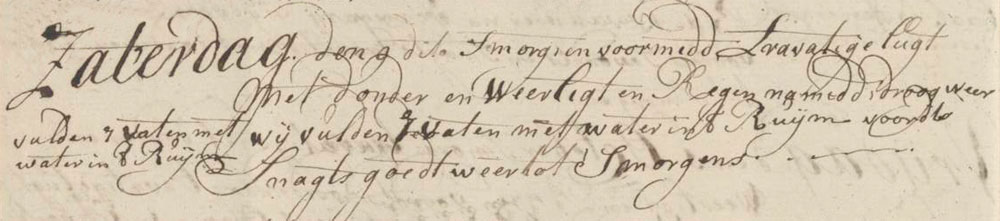 Zaterdag. den 9 dito Smorgs en voormidd Travatige lugt
Met donder en Weerligt en Regen namidd: droog weer
vulden 7 vaten met
water in 't Ruijm
wij vulden 7 vaten met water in 't Ruijm voords
Snagts goedt weer tot Smorgens